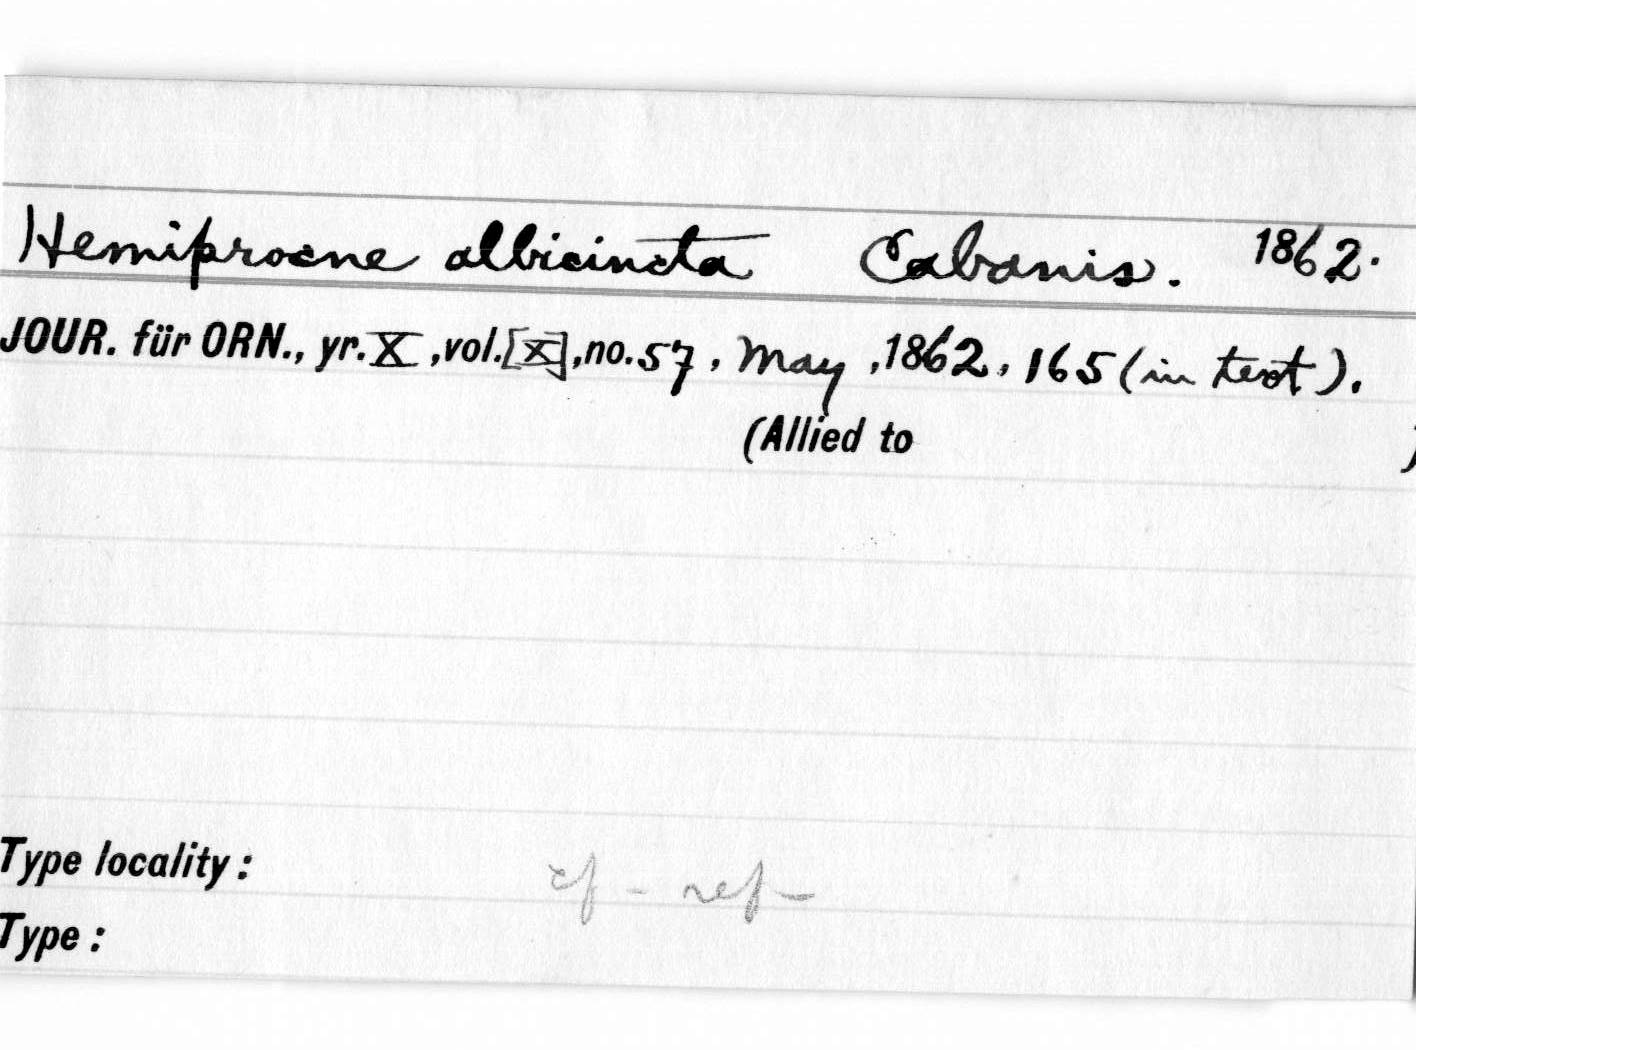 Hemiprocne albicincta Cabanis. 1862.
JOUR. für ORN., yr. X, vol. [X], no. 57, May, 1862, 165 (in text).
(Allied to )
Type locality: cf - ref
Type: